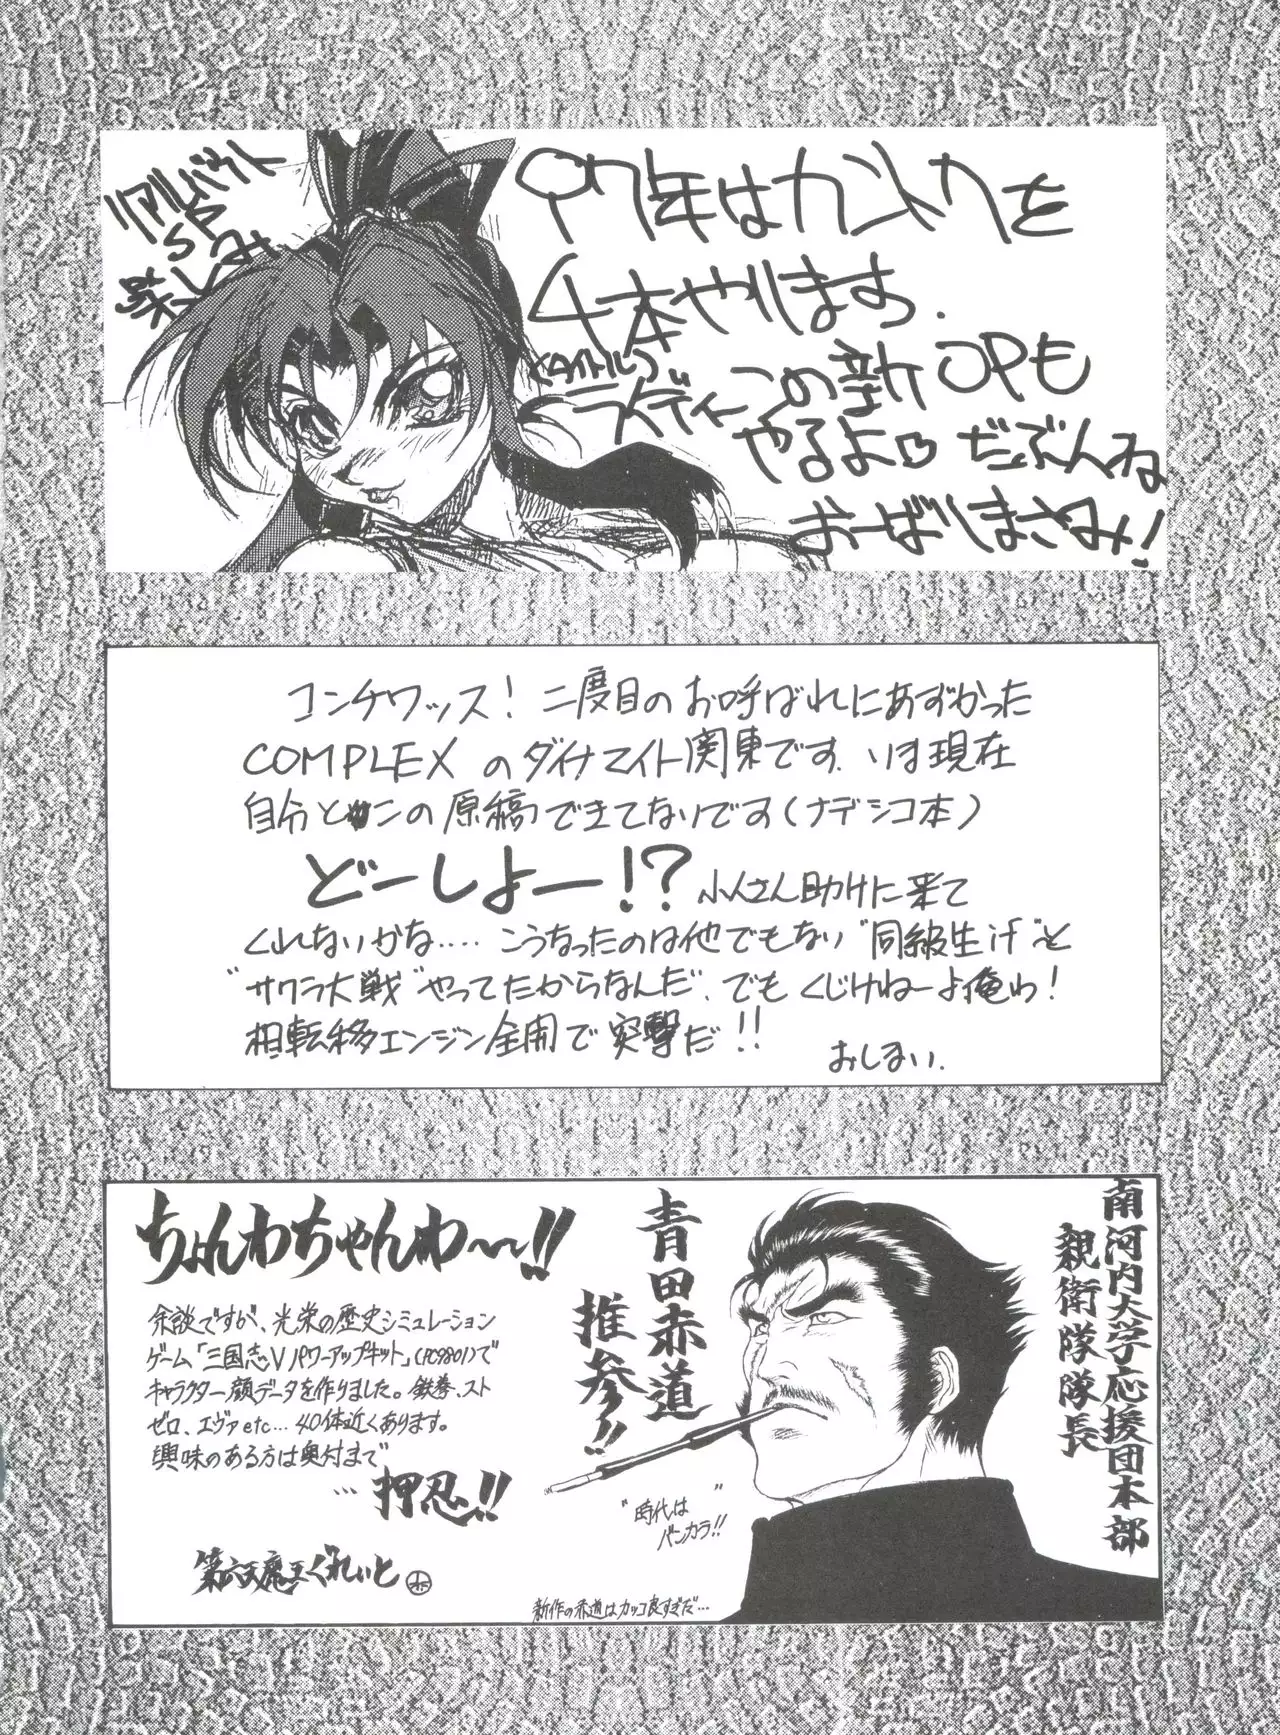 リアルバウト
SP
楽しみ
97年はカントクを
4本やります.
(タイトル)
ラディーンの新OPも
やるよ♡ だぶんね
おーばしまさみ!
コンチワッス! 二度目のお呼ばれにあずかった
COMPLEXのダイナマイト関東です. いま現在
自分とこの原稿できてないです(ナデシコ本)
どーしよー!? 小人さん助けに来て
くれないかな.... こうなったのは他でもない"同級生if"と
"サクラ大戦"やってたからなんだ. でもくじけねーよ俺わ!
相転移エンジン全開で突撃だ!!
おしまい.
ちょんわちゃんわ〜〜!!
余談ですが、光栄の歴史シミュレーション
ゲーム「三国志Vパワーアップキット」(PC9801)で
キャラクター顔データを作りました。鉄拳、スト
ゼロ、エヴァetc... 40体近くあります。
興味のある方は奥付まで
…押忍!!
第六天魔王ぐれいと
南河内大学応援団本部
親衛隊隊長
青田赤道
推参!!
"時代は
バンカラ!!"
新作の赤道はカッコ良すぎだ…